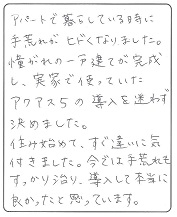 アパートで暮らしている時に
手荒れがヒドくなりました。
憧がれの一戸建てが完成
し、実家で使っていた
アクアス5の導入を迷わず
決めました。
住み始めて、すぐ違いに気
付きました。今では手荒れも
すっかり治り、導入して本当に
良かったと思っています。